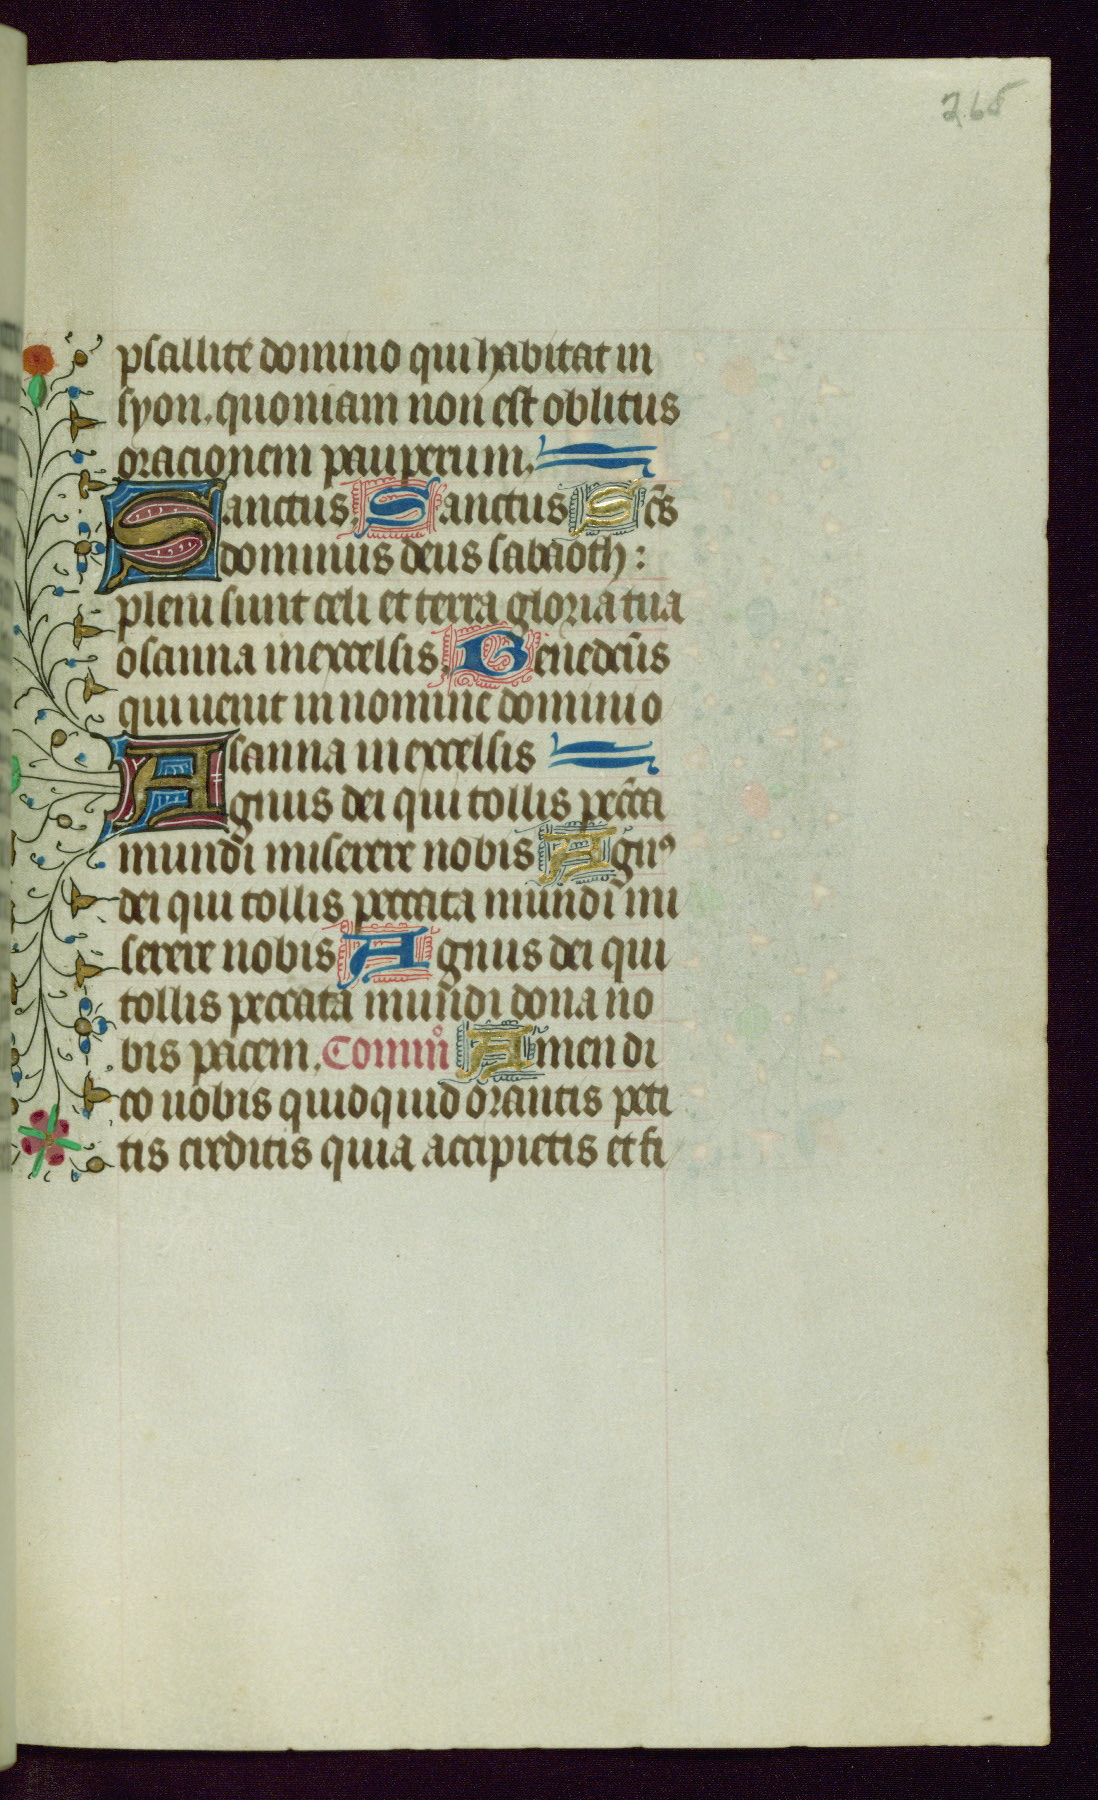 265
psallite domino qui habitat in
syon. quoniam non est oblitus
oracionem pauperum.
Sanctus. Sanctus Sc̄s
dominus deus sabaoth:
pleni sunt celi et terra gloria tua
osanna in excelsis. Benedcūs
qui uenit in nomine domini o
sanna in excelsis
Agnus dei qui tollis pecc̄ta
mundi miserere nobis Agnꝰ
dei qui tollis peccata mundi mi
serere nobis Agnus dei qui
tollis peccata mundi dona no
bis pacem. Comm̄o Amen di
co uobis quidquid orantis peti
tis creditis quia accipietis et fi